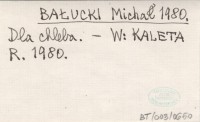 BAŁUCKI Michał 1980.
Dla chleba. – W: KALETA
R. 1980.
BT/003/0560